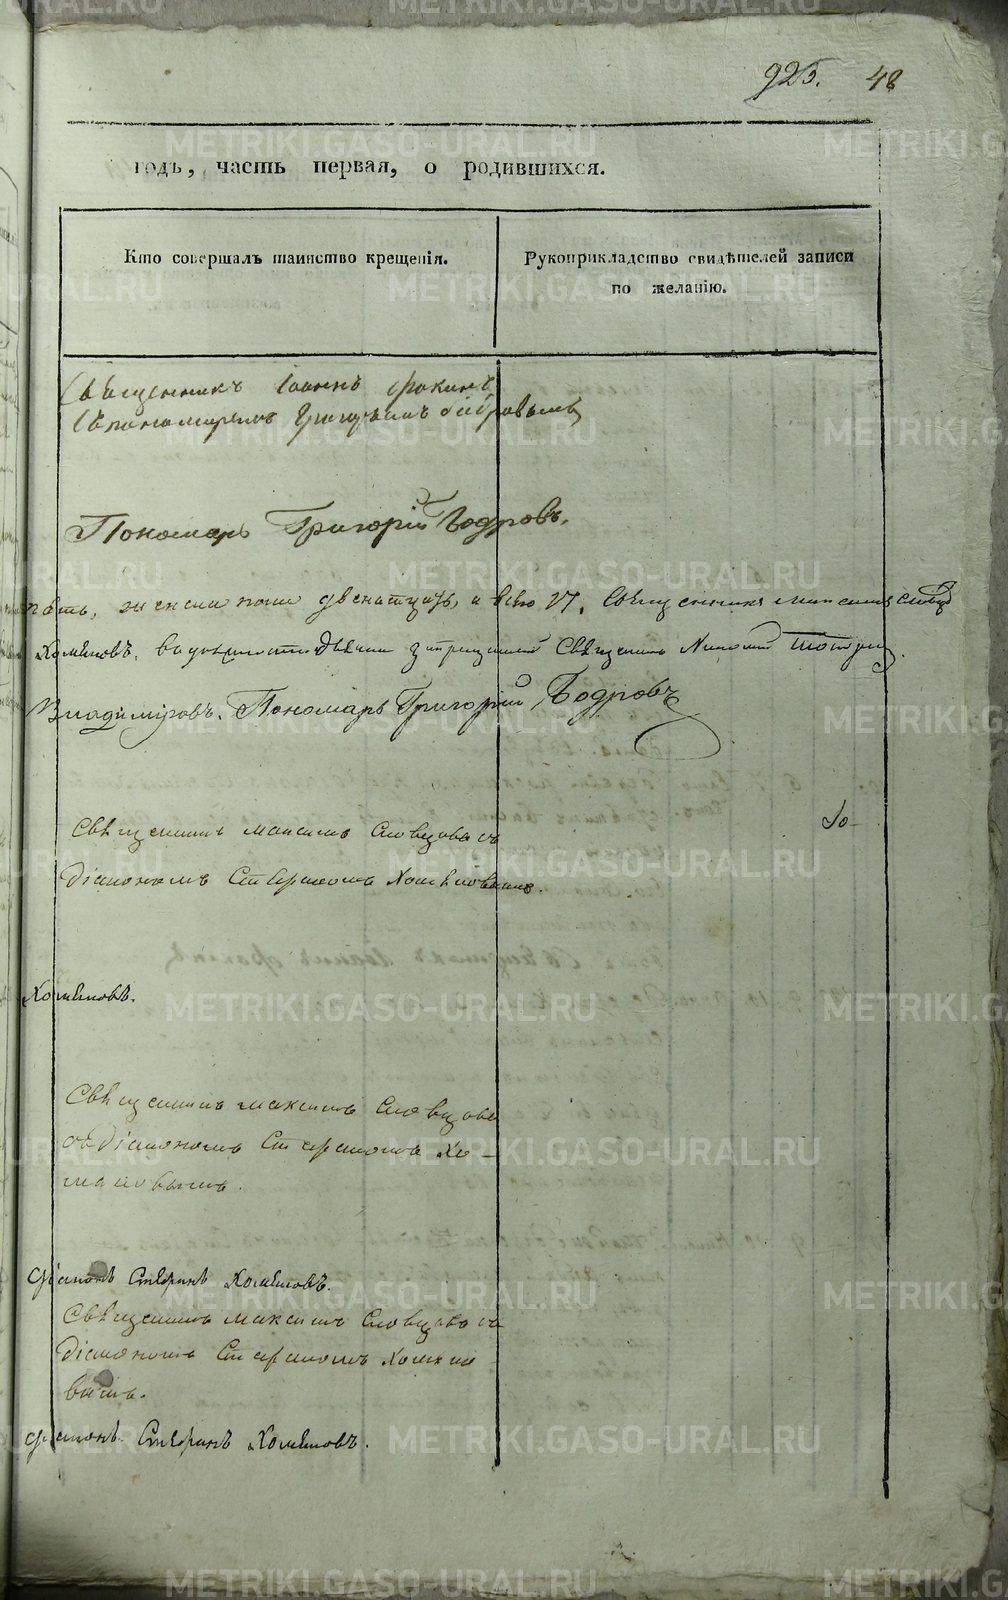 925. 48
годъ, часть первая, о родившихся.
Кто совершалъ таинство крещенія.
Рукоприкладство свидѣтелей записи
по желанію.
Священникъ Іоаннъ Фокинъ
съ пономаремъ Григорьемъ Бодровымъ
Пономарь Григорій Бодровъ.
пять, женска пола двенатцать, а всего 17. Священникъ Максимъ Словцовъ
Хомяковъ. запрещенный Священникъ
Владиміровъ. Пономарь Григорій Бодровъ
Священникъ Максимъ Словцовъ съ
Діакономъ Стефаномъ Хомяковымъ.
Хомяковъ.
Священникъ Максимъ Словцовъ
съ Діакономъ Стефаномъ Хо-
мяковымъ.
Діаконъ Стефанъ Хомяковъ.
Священникъ Максимъ Словцовъ съ
Діакономъ Стефаномъ Хомяко-
вымъ.
Діаконъ Стефанъ Хомяковъ.
METRIKI.GASO-URAL.RU